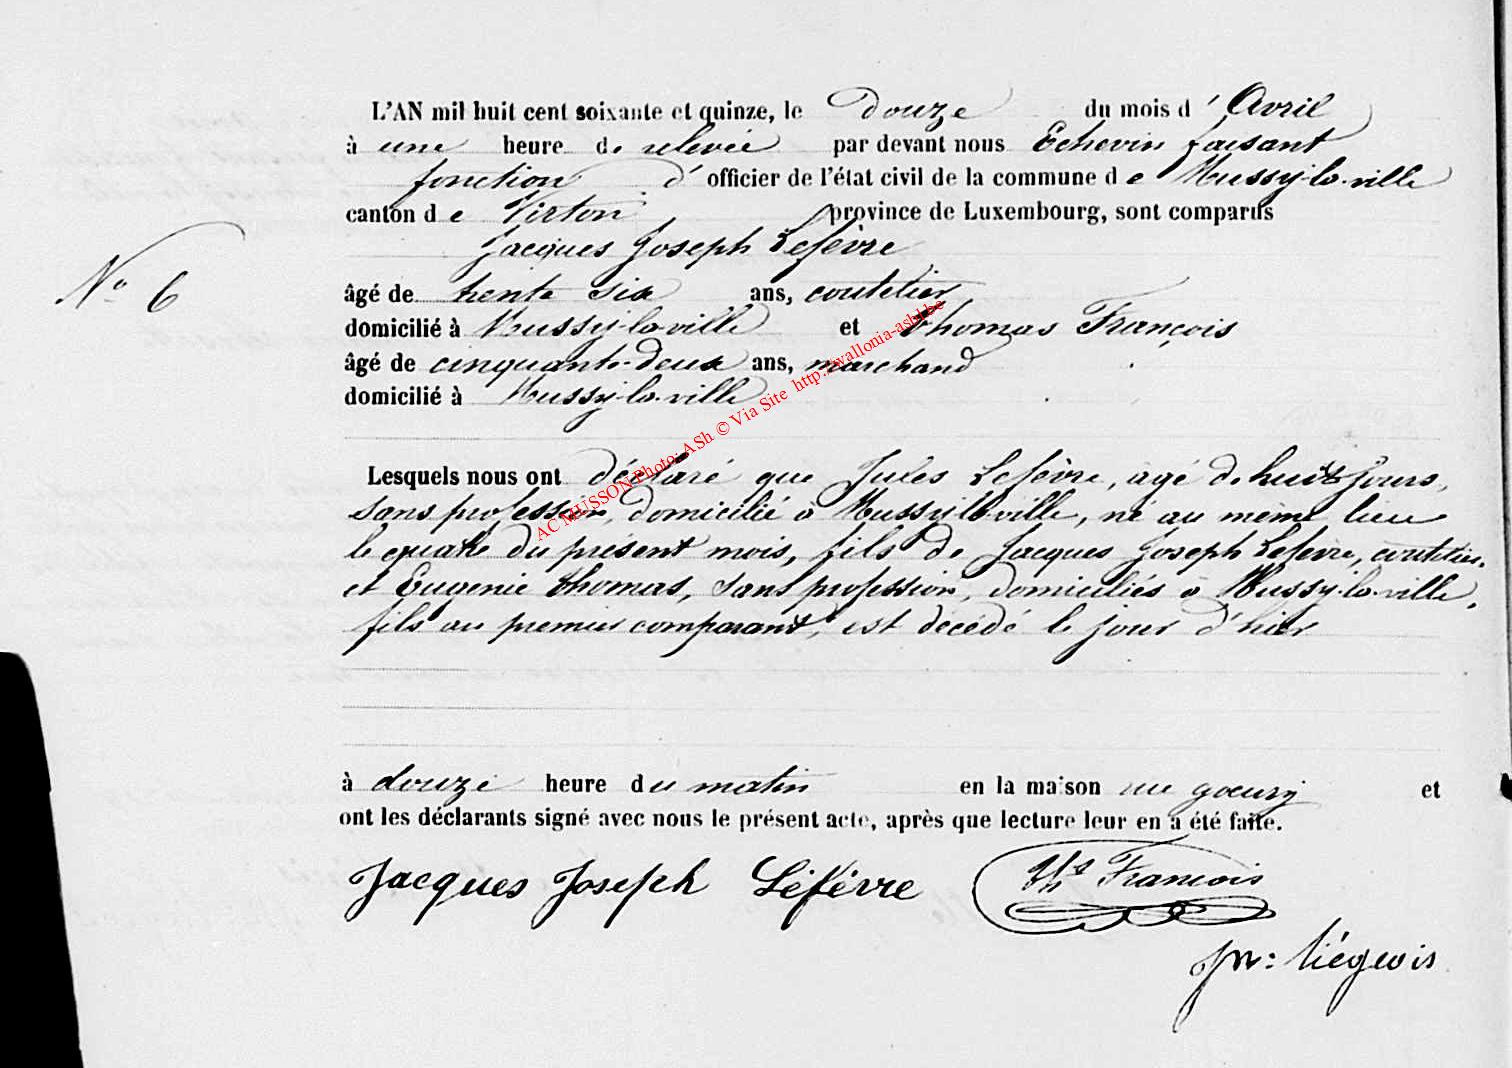 L'AN mil huit cent soixante et quinze, le Douze du mois d' Avril
à une heure de relevée par devant nous Echevin faisant
fonction d' officier de l'état civil de la commune de Mussy-la-ville
canton de Virton province de Luxembourg, sont comparus
Jacques Joseph Lefèvre
N° 6
âgé de trente six ans, coutelier
domicilié à Mussy-la-ville et Thomas François
âgé de cinquante-deux ans, marchand
domicilié à Mussy-la-ville
AC MUSSON Photo: ASh © Via Site http://wallonia-ash.be
Lesquels nous ont déclaré que Jules Lefèvre, âgé de huit jours,
sans profession, domicilié à Mussy-la-ville, né au même lieu
le quatre du présent mois, fils de Jacques Joseph Lefèvre, coutelier
et Eugenie Thomas, sans profession, domiciliés à Mussy-la-ville,
fils au premier comparant, est décédé le jour d'hier
à douze heure du matin en la maison rue et
ont les déclarants signé avec nous le présent acte, après que lecture leur en a été faite.
Jacques Joseph Léfévre Ths François
Liégeois